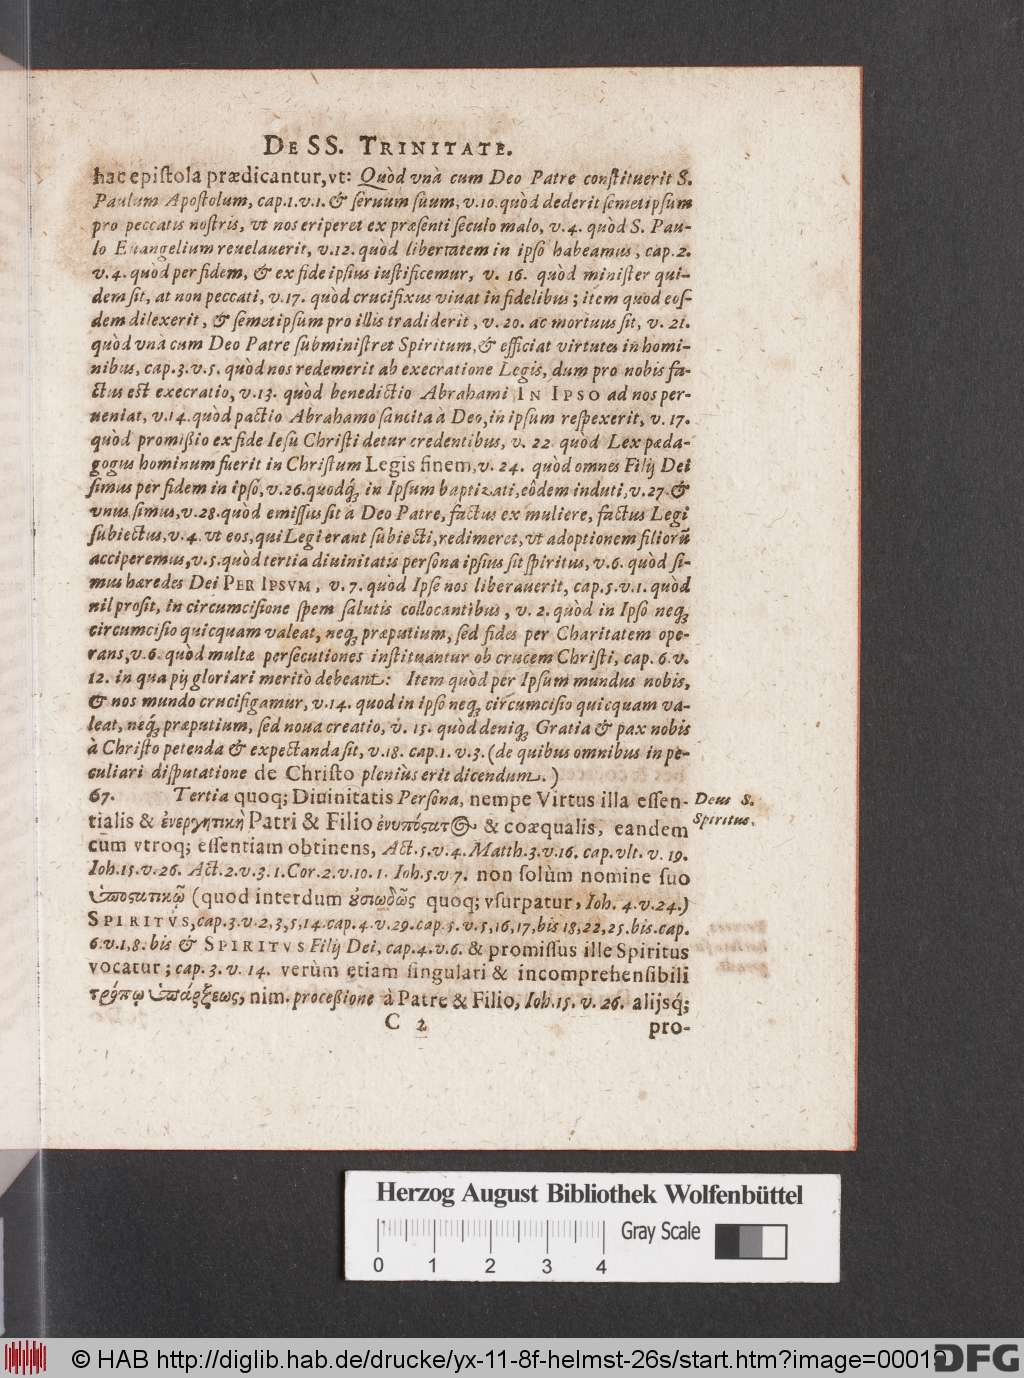 DE SS. TRINITATE.
hac epiſtola prædicantur, vt: Quòd vnà cum Deo Patre conſtituerit S.
Paulum Apoſtolum, cap. 1. v. 1. & ſeruum ſuum, v. 10. quòd dederit ſemetipſum
pro peccatis noſtris, vt nos eriperet ex præſenti ſeculo malo, v. 4. quòd S. Pau-
lo Euangelium reuelauerit, v. 12. quòd libertatem in ipſo habeamus, cap. 2.
v. 4. quòd per fidem, & ex fide ipſius iuſtificemur, v. 16. quòd miniſter qui-
dem ſit, at non peccati, v. 17. quòd crucifixus viuat in fidelibus; item quod eoſ-
dem dilexerit, & ſemetipſum pro illis tradiderit, v. 20. ac mortuus ſit, v. 21.
quòd vnà cum Deo Patre ſubminiſtret Spiritum, & efficiat virtutes in homi-
nibus, cap. 3. v. 5. quòd nos redemerit ab execratione Legis, dum pro nobis fa-
ctus est execratio, v. 13. quòd benedictio Abrahami IN IPSO ad nos per-
ueniat, v. 14. quòd pactio Abrahamo ſancita à Deo, in ipſum reſpexerit, v. 17.
quòd promiſſio ex fide Ieſu Chriſti detur credentibus, v. 22 quòd Lex pæda-
gogus hominum fuerit in Chriſtum Legis finem, v. 24. quòd omnes Filij Dei
ſimus per fidem in ipſo, v. 26. quodq́; in Ipſum baptizati, eôdem induti, v. 27. &
vnus ſimus, v. 28. quòd emiſſus ſit à Deo Patre, factus ex muliere, factus Legi
ſubiectus, v. 4. vt eos, qui Legi erant ſubiecti, redimeret, vt adoptionem filiorũ
acciperemus, v. 5. quòd tertia diuinitatis perſona ipſius ſit ſpiritus, v. 6. quòd ſi-
mus hæredes Dei PER IPSVM, v. 7. quòd Ipſe nos liberauerit, cap. 5. v. 1. quòd
nil proſit, in circumciſione ſpem ſalutis collocantibus, v. 2. quòd in Ipſo neq;
circumciſio quicquam valeat, neq; præputium, ſed fides per Charitatem ope-
rans, v. 6. quòd multæ perſecutiones inſtituantur ob crucem Chriſti, cap. 6. v.
12. in qua pij gloriari meritò debeant: Item quòd per Ipſum mundus nobis,
& nos mundo crucifigamur, v. 14. quod in ipſo neq; circumciſio quicquam va-
leat, neq́; præputium, ſed noua creatio, v. 15. quòd deniq; Gratia & pax nobis
à Chriſto petenda & expectanda ſit, v. 18. cap. 1. v. 3. (de quibus omnibus in pe-
culiari diſputatione de Chriſto pleniùs erit dicendum.)
67. Tertia quoq; Diuinitatis Perſona, nempe Virtus illa eſſen-
tialis & ἐνεργητικὴ Patri & Filio ἐνυπόςατος & coæqualis, eandem
cum vtroq; eſſentiam obtinens, Act. 5. v. 4. Matth. 3. v. 16. cap. vlt. v. 19.
Ioh. 15. v. 26. Act. 2. v. 3. 1. Cor. 2. v. 10. 1. Ioh. 5. v 7. non ſolùm nomine ſuo
ὑποςατικῷ (quod interdum ȣσιωδῶς quoq; vſurpatur, Ioh. 4. v. 24.)
SPIRITVS, cap. 3. v. 2, 3, 5, 14. cap. 4. v. 29. cap. 5. v. 5, 16, 17, bis 18, 22, 25. bis. cap.
6. v. 1, 8. bis & SPIRITVS Filij Dei, cap. 4. v. 6. & promiſſus ille Spiritus
vocatur; cap. 3. v. 14. verùm etiam ſingulari & incomprehenſibili
τρόπῳ ὑπάρξεως, nim. proceſſione à Patre & Filio, Ioh. 15. v. 26. alijsq́;
C 2
pro-
Deus S.
Spiritus.
Herzog August Bibliothek Wolfenbüttel
0 1 2 3 4
Gray Scale
© HAB http://diglib.hab.de/drucke/yx-11-8f-helmst-26s/start.htm?image=00019
DFG